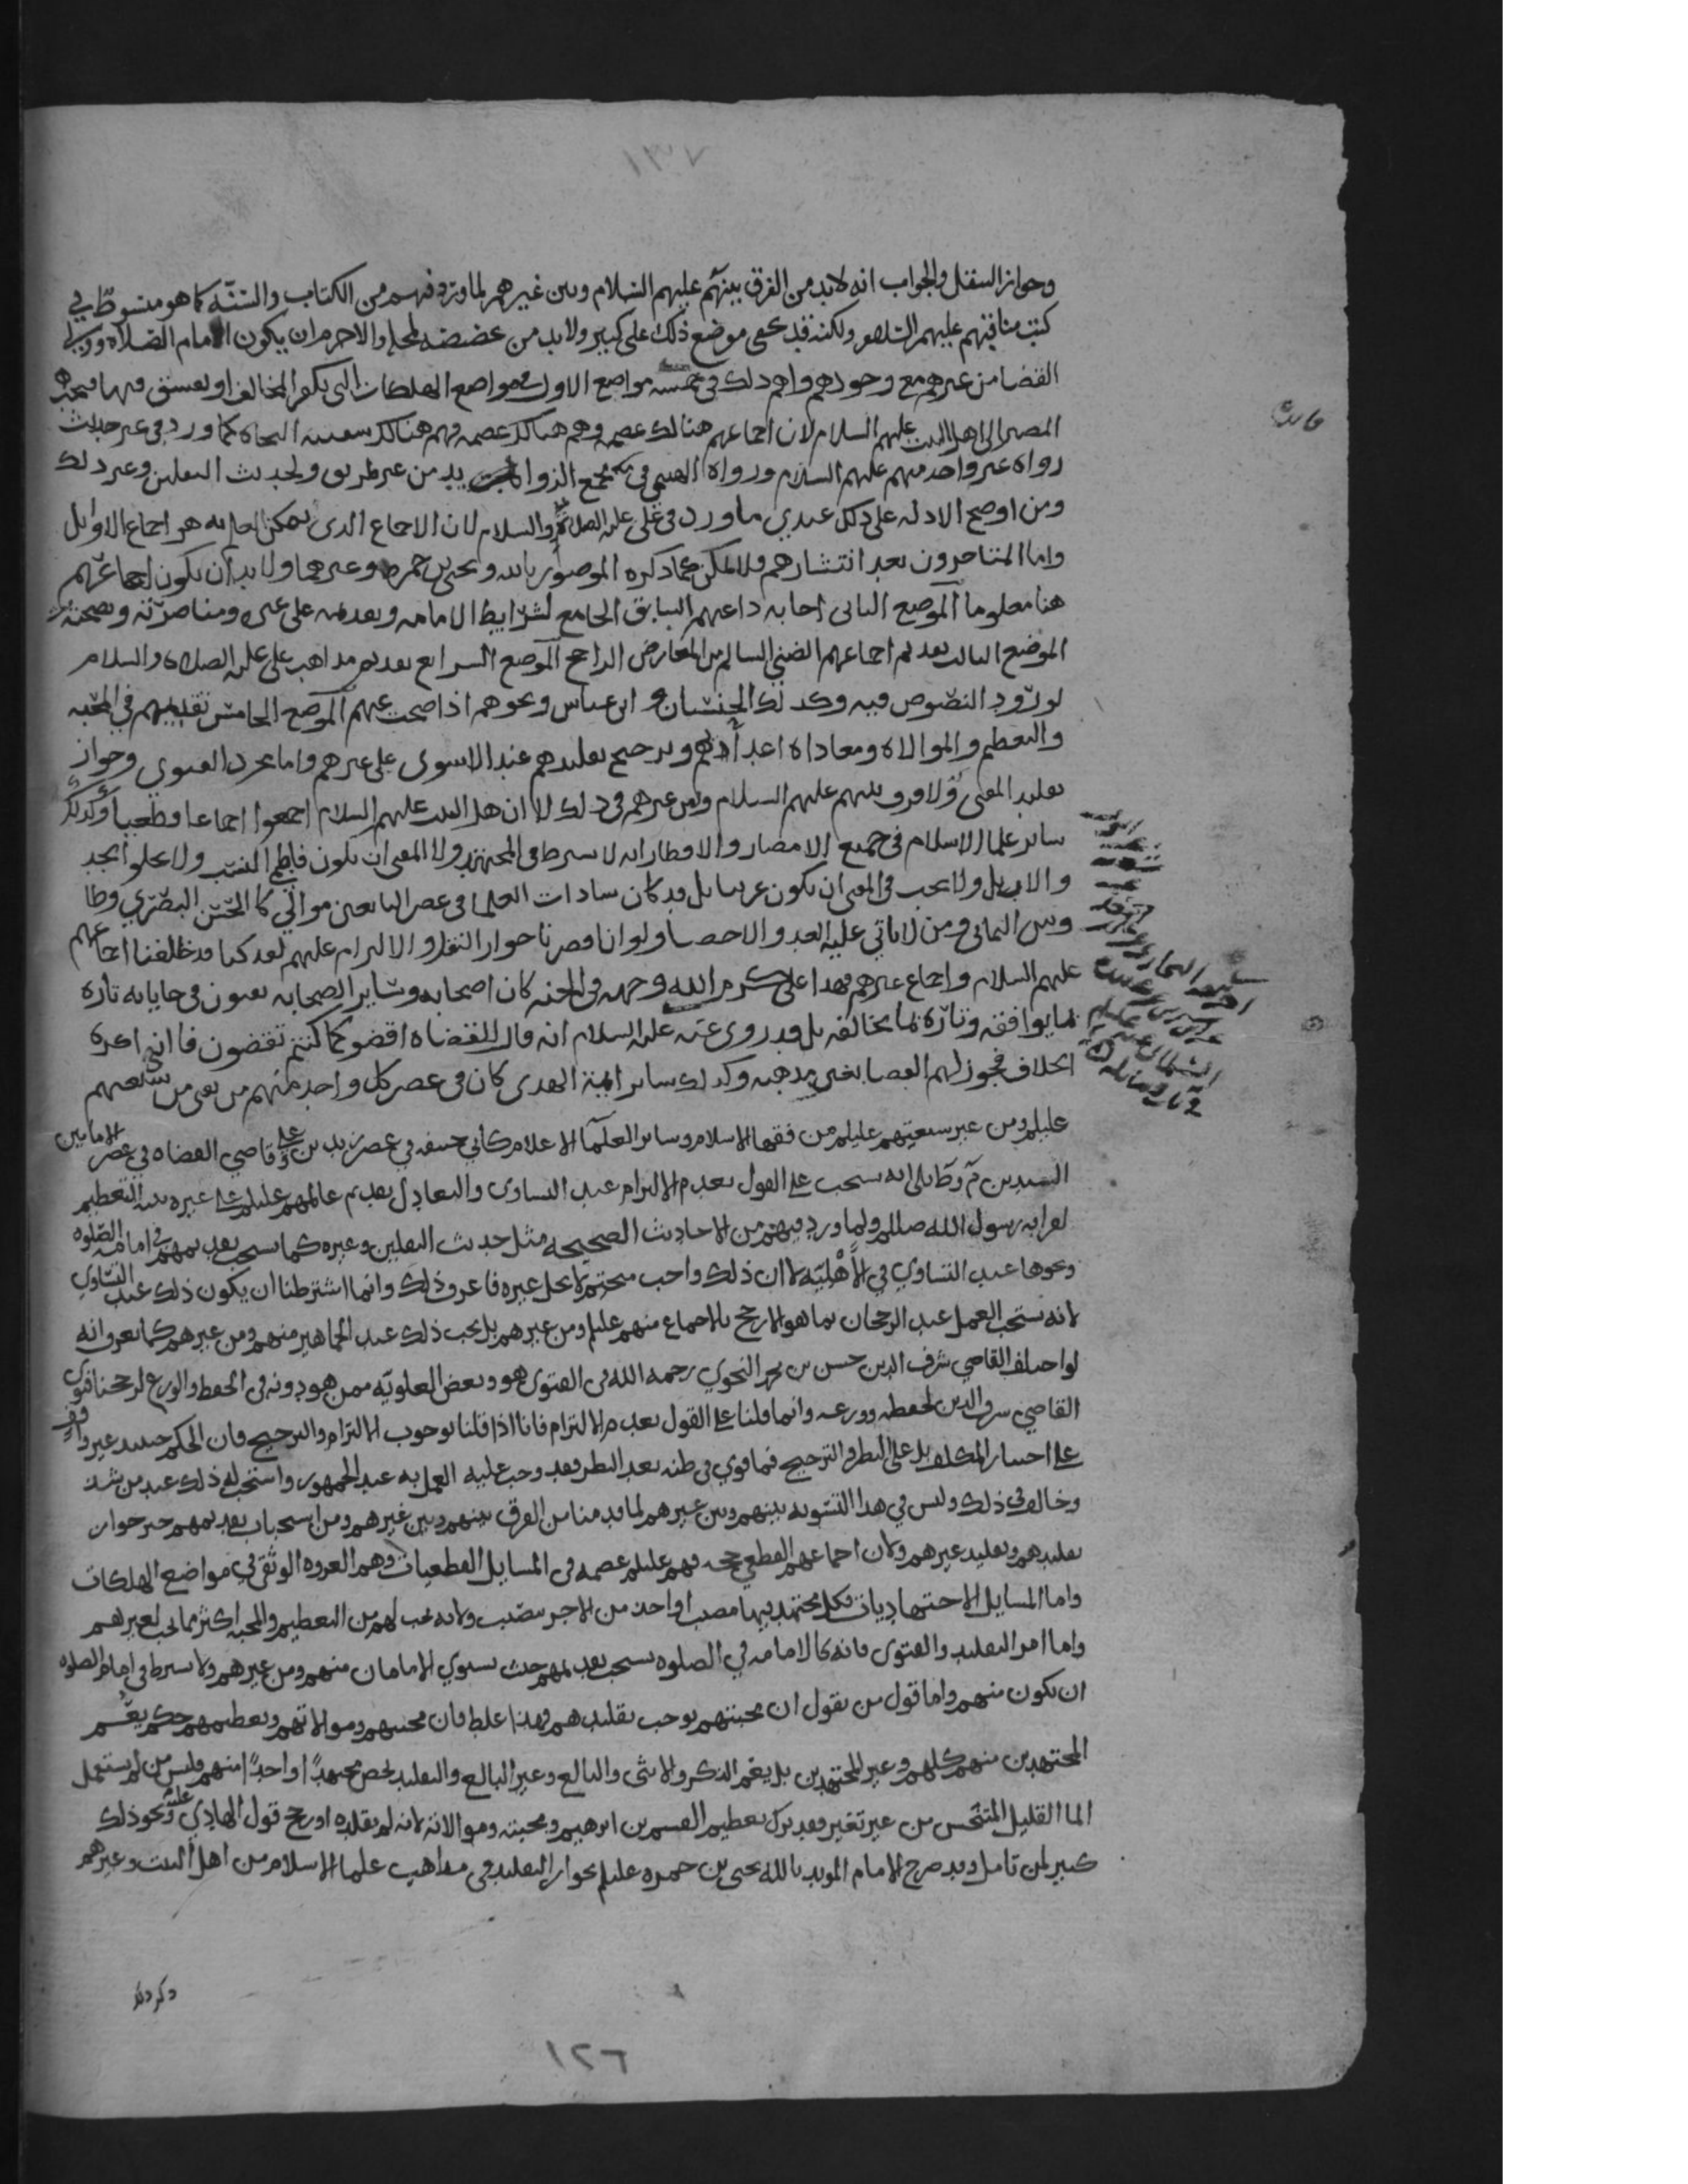 ١٣٧
وجواز التنقل والجواب انه لابد من الفرق بينهم عليهم السلام وبين غيرهم لما ورد فيهم من الكتاب والسنة كما هو مبسوط في
كتب مناقبهم عليهم السلام ولكنه قد يخفى موضع ذلك على كثير ولابد من
القضا من غيرهم مع وجودهم واهم ذلك في خمسة مواضع الاول في مواضع الهلكات التي يكفر المخالف او يفسق فيها فيجب
المصير الى اهل البيت عليهم السلام لان اجماعهم هنالك عصمه وهم هنالك عصمه فهم هنالك سفينة النجاة كما ورد في غير حديث
رواه غير واحد منهم عليهم السلام ورواه الهيثمي في مجمع الزوايد من غير طريق ولحديث الثقلين وغير ذلك
ومن اوضح الادله على ذلك عندي ما ورد في علي عليه الصلاة والسلام لان الاجماع الذي يمكن العلم به هو اجماع الاوايل
واما المتاخرون بعد انتشارهم فلا يمكن كما ذكره المنصور بالله ويحيى بن حمزه وغيرهما ولا بد ان يكون اجماعهم
هنا معلوما الموضع الثاني اجابة داعيهم السابق الجامع لشرايط الامامه وتقديمه على غيره ومناصرته ونصيحته
الموضع الثالث تقديم اجماعهم الظني السالم من المعارض الراجح الموضع الرابع تقديم مذاهب علي عليه الصلاة والسلام
لورود النصوص فيه وكذلك الحسنان و ابن عباس ونحوهم اذا صحت عنهم الموضع الخامس تقديمهم في المحبه
والتعظيم والموالاه ومعاداة اعدائهم وترجيح تقليدهم عند الاستوى على غيرهم واما مجرد الفتوى وجواز
تقليد المفتي فلا فرق بينهم عليهم السلام وبين غيرهم في ذلك لان اهل البيت عليهم السلام اجمعوا اجماعا قطعيا وكذلك
ساير علما الاسلام في جميع الامصار والاقطار انه لا يشترط في المجتهد ولا المفتي ان يكون فاطمي النسب ولا
ولا يجب في المفتي ان يكون عربيا بل قد كان سادات العلما في عصر التابعين موالي كالحسن البصري وطا
وس اليماني ومن لا ياتي عليه العد والاحصا ولو انا قصرنا جواز التقليد والالتزام عليهم لقد كنا قد خالفنا اجماعهم
عليهم السلام واجماع غيرهم فهذا علي كرم الله وجهه في الجنه كان اصحابه وساير الصحابه يفتون في حياته تارة
بما يوافقه وتارة بما يخالفه بل قد روي عنه عليه السلام انه قال للقضاه اقضوا كما كنتم تقضون فاني اكره
الخلاف فجوز لهم القضا بغير مذهبه وكذلك ساير ايمة الهدى كان في عصر كل واحد منهم من يفتي من شيعتهم
عليلم ومن غير شيعتهم عليلم من فقها الاسلام وساير العلما الاعلام كابي حنيفه في عصر زيد بن علي وقاضي القضاه في عصر الامامين
السيدين م وط بلى انه يستحب على القول بعدم الالتزام عند التساوى والتعادل تقديم عالمهم عليلم على غيره بنية التعظيم
لقرابه رسول الله صللم ولما ورد فيهم من الاحاديث الصحيحه مثل حديث الثقلين وغيره كما يستحب تقديمهم في امامة الصلوه
ونحوها عند التساوي في الاهليه لا ان ذلك واجب متحتم لا يحل غيره فاعرف ذلك وانما اشترطنا ان يكون ذلك عند التساوي
لانه يستحب العمل عند الرجحان بما هو الارجح بالاجماع منهم عليلم ومن غيرهم بل يجب ذلك عند الجماهير منهم ومن غيرهم كما نعرف انه
لو اختلف القاضي شرف الدين حسن بن محمد النحوي رحمه الله في الفتوى هو وبعض العلويه ممن هو دونه في الحفظ والورع لرجحنا فتوى
القاضي شرف الدين لحفظه وورعه وانما قلنا على القول بعدم الالتزام فانا اذا قلنا بوجوب الالتزام والترجيح فان الحكم حينيذ غير واقف
على اختيار المكلف بل على النظر والترجيح فما قوي في ظنه بعد النظر فقد وجب عليه العمل به عند الجمهور واستحب له ذلك عند من شذ
وخالف في ذلك وليس في هذا التسويه بينهم وبين غيرهم لما قدمنا من الفرق بينهم وبين غيرهم ومن استحباب تقديمهم حيز جواز
تقليدهم وتقليد غيرهم ولان اجماعهم القطعي حجه فهم عليلم عصمه في المسايل القطعيات وهم العروه الوثقى في مواضع الهلكات
واما المسايل الاجتهاديات فكل مجتهد فيها مصيب او اخذ من الاجر بنصيب ولانه يجب لهم من التعظيم والمحبه اكثر مما يجب لغيرهم
واما امر التقليد والفتوى فانه كالامامه في الصلوه يستحب تقديمهم حيث يستوي الامامان منهم ومن غيرهم ولا يشترط في امام الصلوه
ان يكون منهم واما قول من يقول ان محبتهم توجب تقليدهم فهذا غلط فان محبتهم وموالاتهم وتعظيمهم حكم يعم
المجتهدين منهم كلهم وغير المجتهدين بل يعم الذكر والانثى والبالغ وغير البالغ والتقليد يخص مجتهدا واحدا منهم وليس من لم يستعمل
الما القليل المتنجس من غير تغير فقد ترك تعظيم القسم بن ابرهيم ومحبته وموالاته لانه لم يقلده او رجح قول الهادي علي ونحو ذلك
كثير لمن تامل وقد صرح الامام المويد بالله يحيى بن حمزه عليلم بجواز التقليد في مذاهب علما الاسلام من اهل البيت وغيرهم
١٢٦